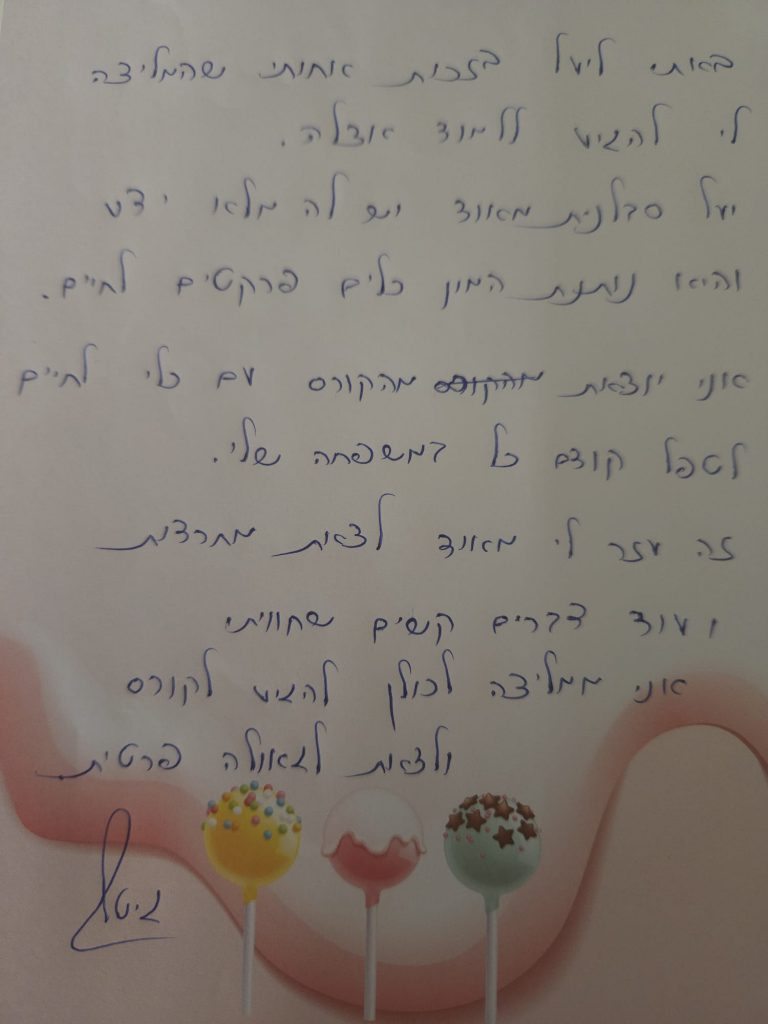 באתי ליעל בזכות אחותי שהמליצה
לי להגיע ללמוד אצלה.
יעל סבלנית מאוד ויש לה מלא ידע
והיא נותנת המון כלים פרקטים לחיים.
אני יוצאת מהקורס מהקורס עם כלי לחיים
לטפל קודם כל במשפחה שלי.
זה עזר לי מאוד לצאת מחרדות
ועוד דברים קשים שחוויתי
אני ממליצה לכולן להגיע לקורס
ולצאת לגאולה פרטית.